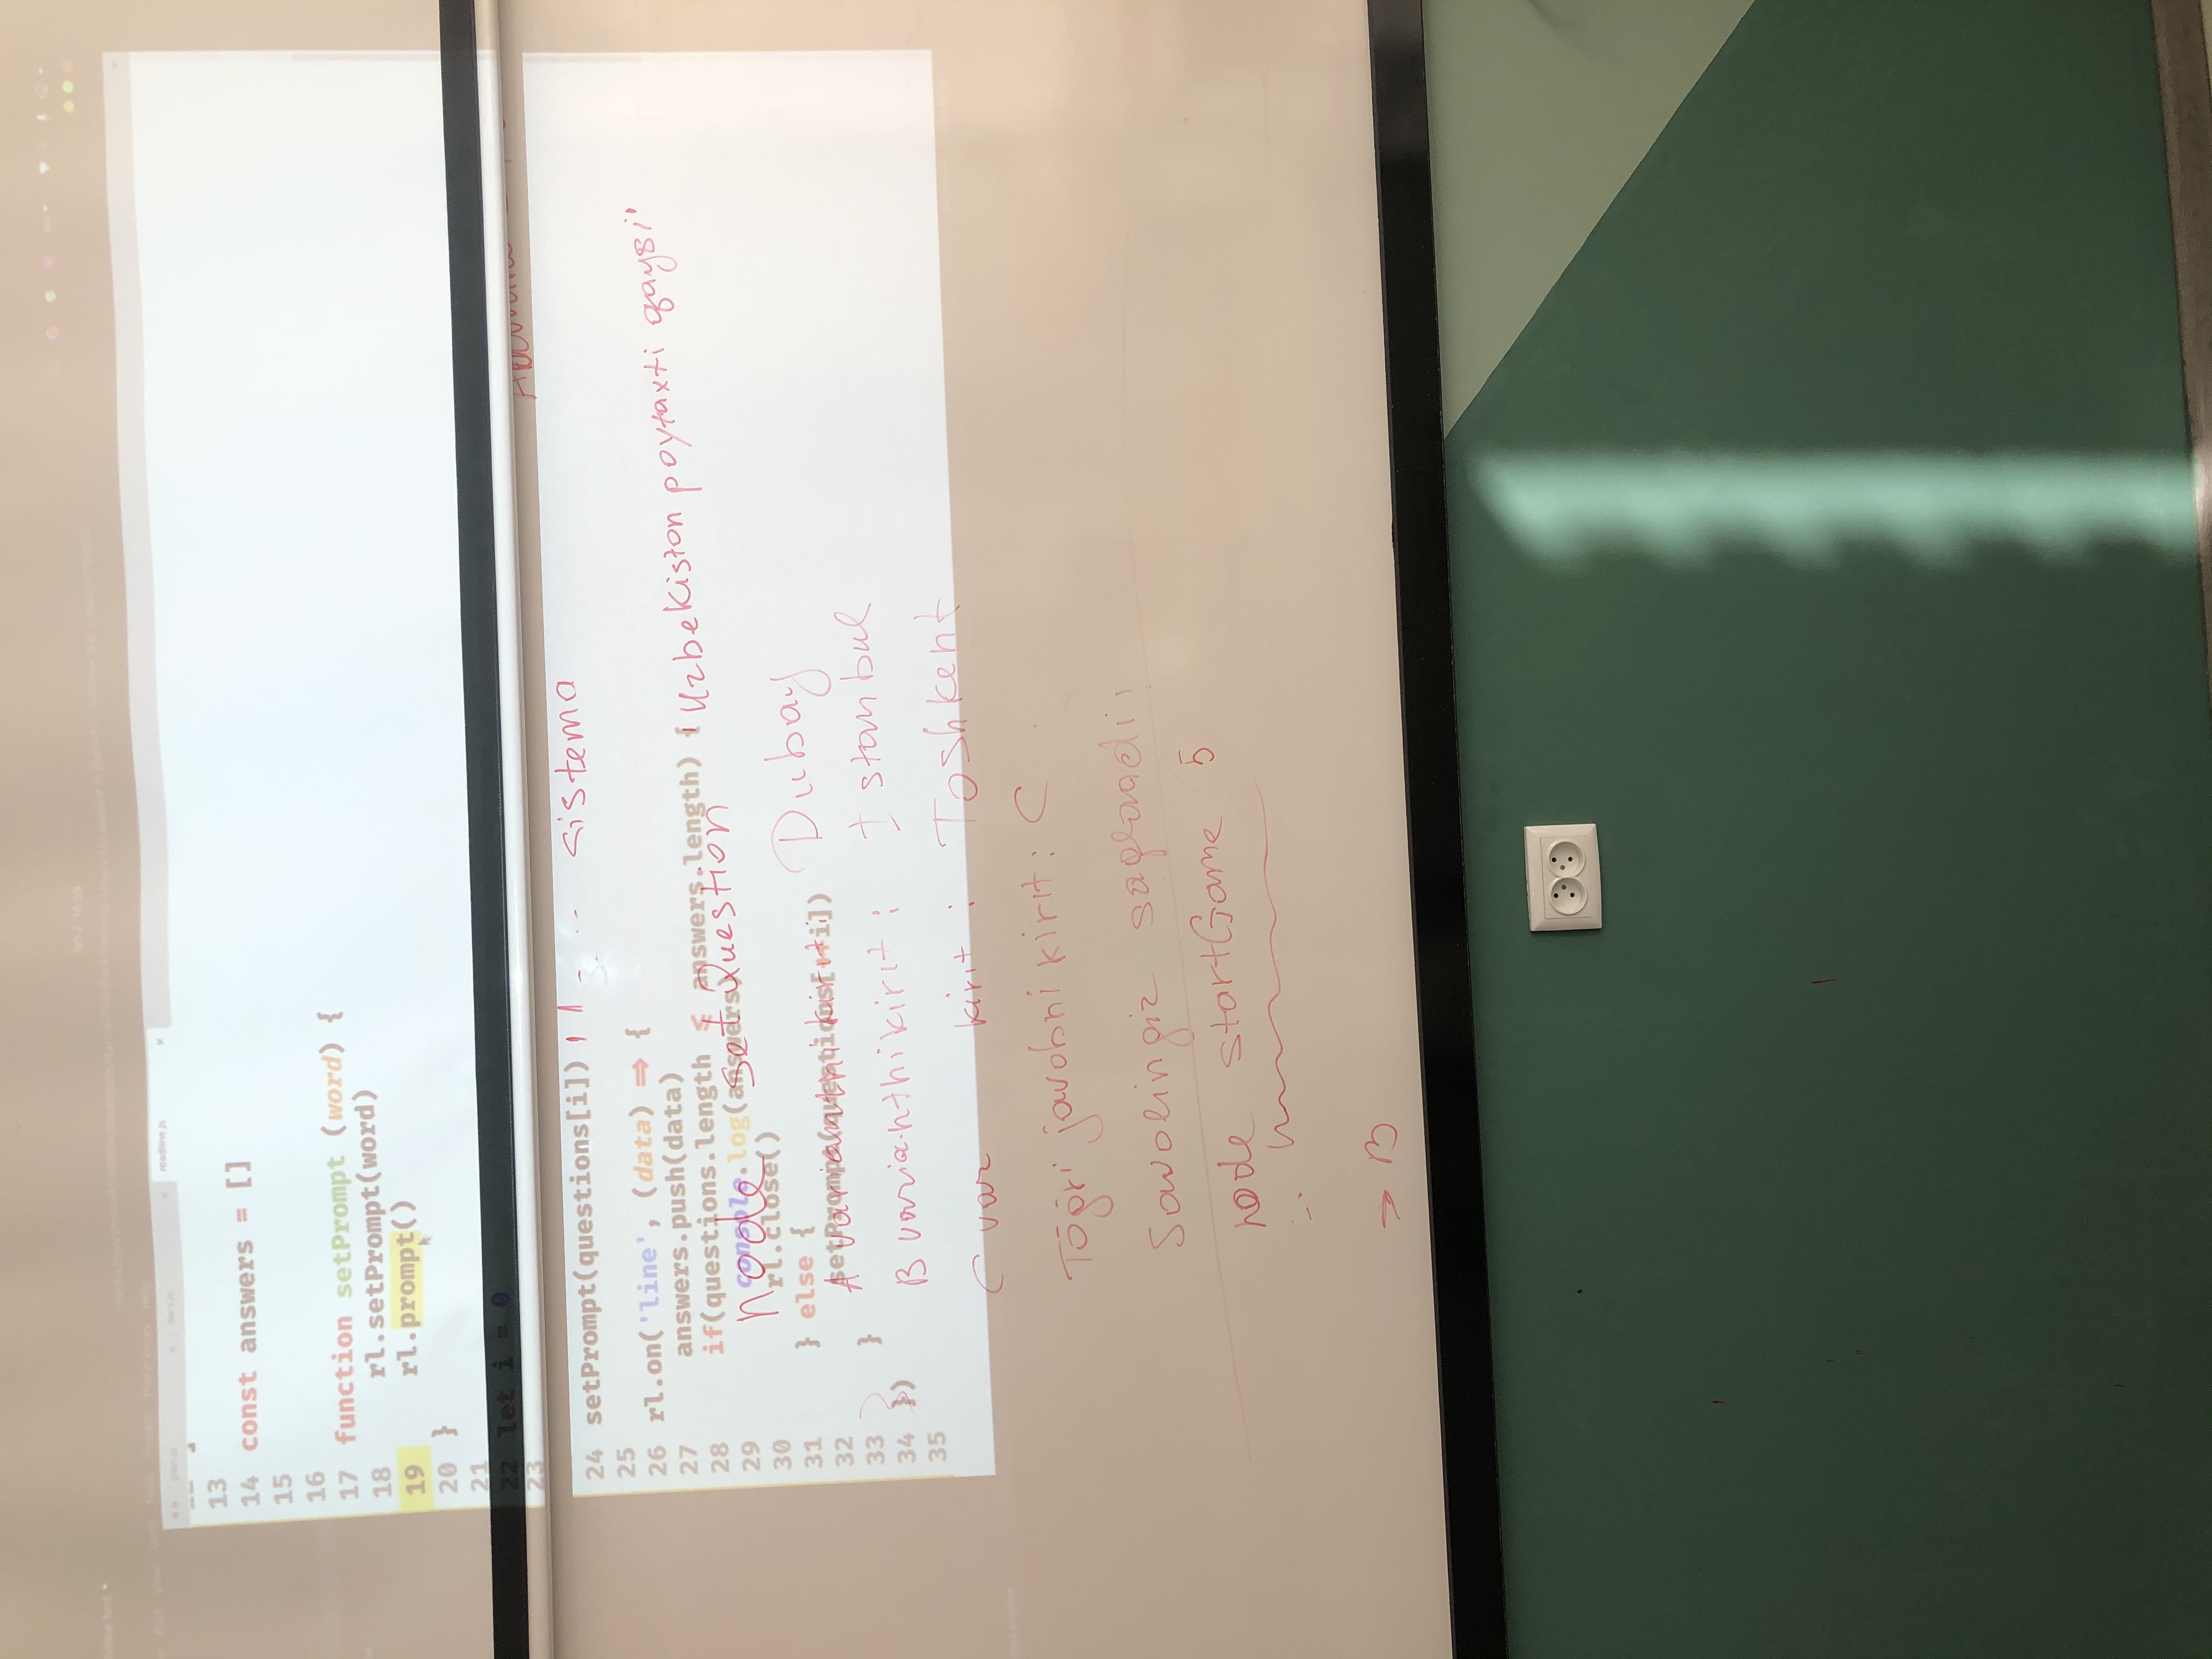 readline.js
13
14 const answers = []
15
16
17 function setPrompt (word) {
18 rl.setPrompt(word)
19 rl.prompt()
20 }
21
22 let i = 0
23
24 setPrompt(questions[i])
sistema
25
26 rl.on('line', (data) ⇒ {
27 answers.push(data)
28 if(questions.length ≤ answers.length) {
29 console.log(answers)
30 rl.close()
31 } else {
32 setPrompt(questions[++i])
33 }
34 })
35
node setQuestion "Uzbekiston poytaxti qaysi"
A variantni kirit: Dubay
B variantni kirit: Istanbul
C var kirit: Toshkent
Tōḡri javobni kirit: C
Savolingiz saqlandi!
node startGame 5
> B